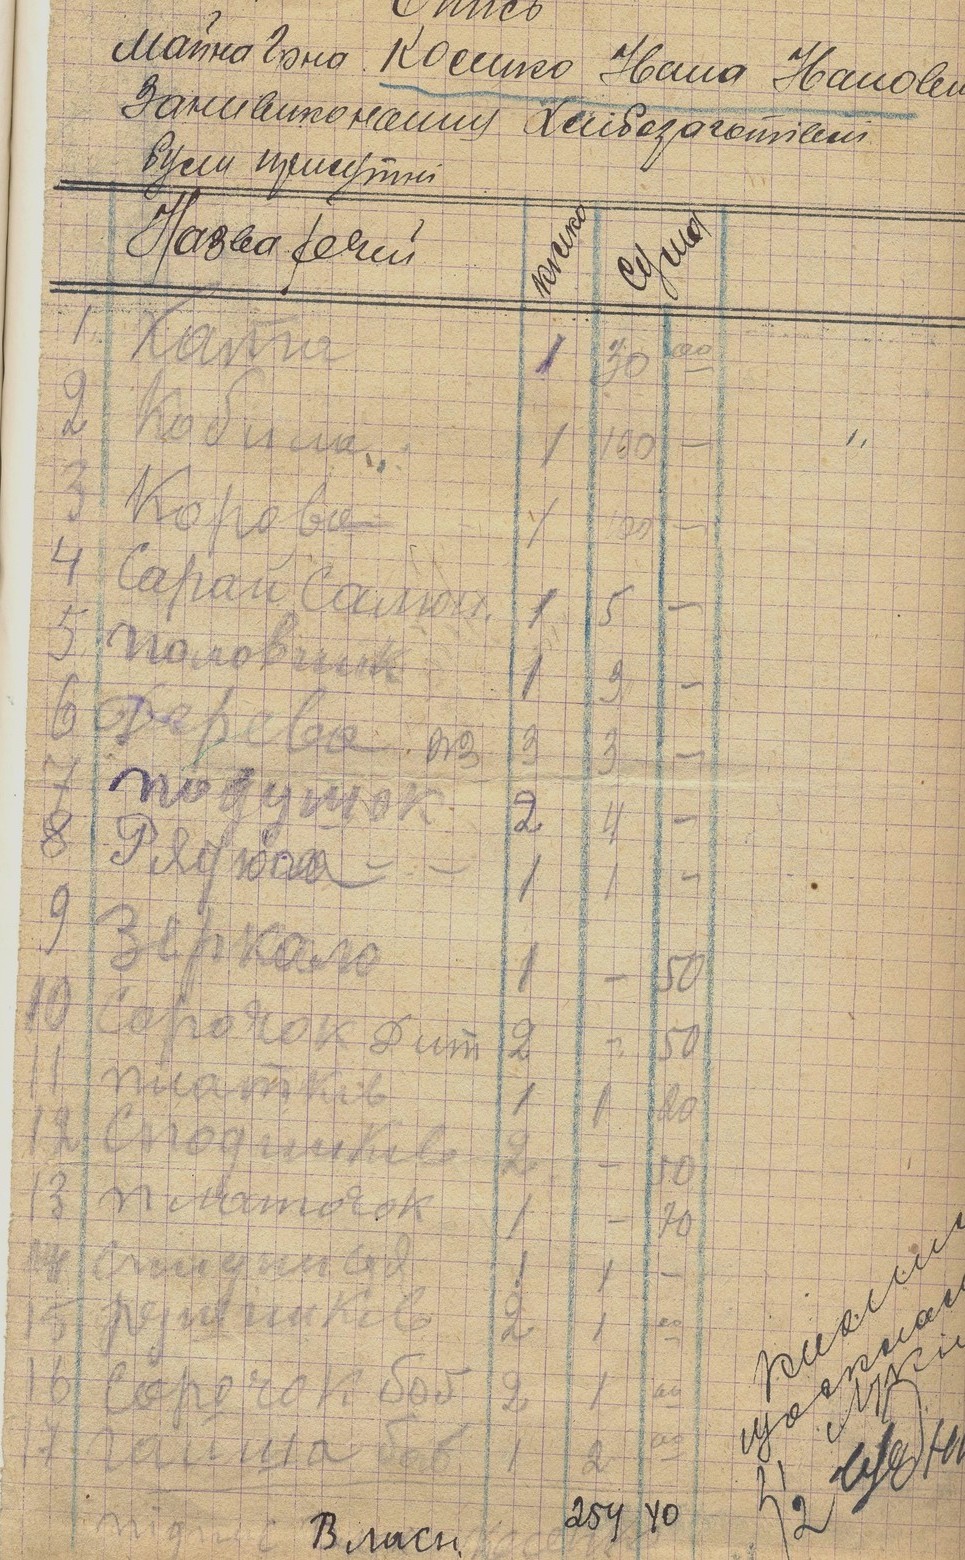 Опись
Майна Гр-на Косенко Івана
За невиконання хлібозаготівлі
були присутні
Назва речей кілько Сума
1 Хата 1 30 00
2 Кобила 1 100 —
3 Корова 1 100 —
4 Сарай Солом. 1 5 —
5 половник 1 3 —
6 Дерева 3 3 —
7 подушок 2 4 —
8 Рядюга - - 1 1 —
9 Зеркало 1 — 50
10 Сорочок Дит 2 — 50
11 платків 1 1 20
12 Сподників 2 — 50
13 платочок 1 — 70
14 спидниця 1 1 —
15 рушників 2 1 00
16 Сорочок баб 2 1 00
17 баб 1 2 00
підпис Власн. 254 40